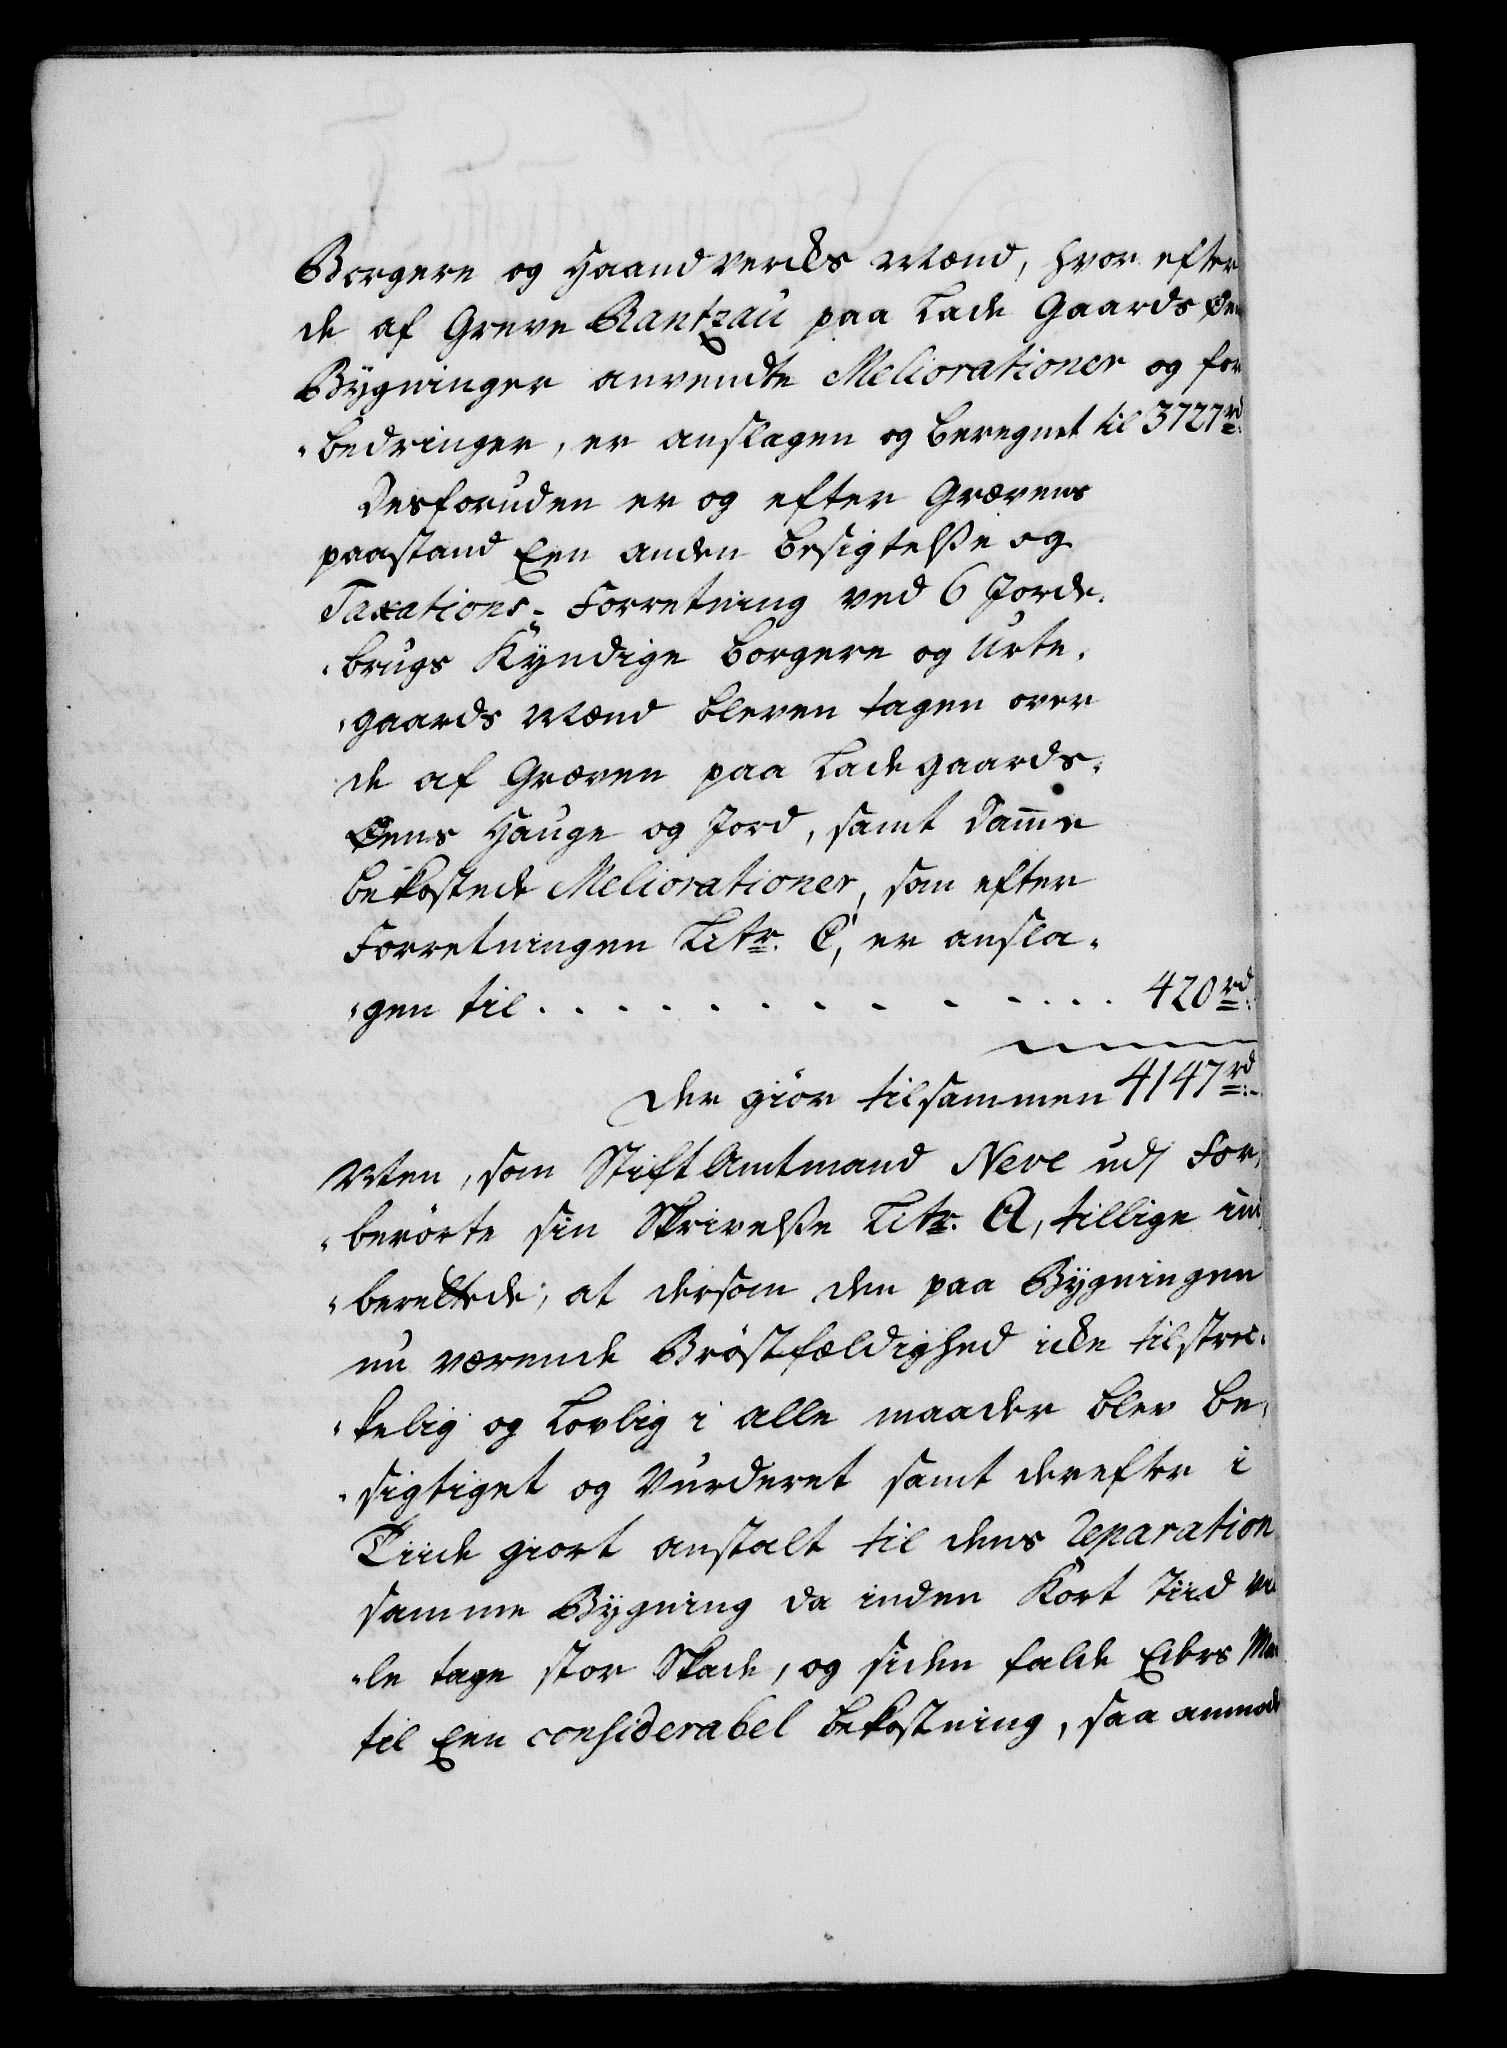 Borgere og Haandverchs Mænd, hvor efter
de af Greve Rantzau paa Lade Gaards Øens
Bÿgninger anvendte Meliorationer og for
„bedringer, er anslagen og beregnet til 3727 rd.
Desforuden er og efter Grævens
paastand Een anden besigtelsse og
Taxations-Forretning ved 6 Jorde„
„brugs Kÿndige borgere og Urte„
„gaards Mænd bleven tagen over
de af Græven paa Ladegaards„
Øens Hauge og Jord, samt Damme
bekostede Meliorationer, som efter
Forretningen Litr. C, er ansla„
„gen til . . . . . . . . . . . . 420 rd.
der giör tilsammen 4147 rd.
Men, som Stift Amtmand Neve udj For„
„berörte sin Skrivelsse Litr. A, tillige ind„
„berettede, at dersom den paa Bÿgningen
nu værende Bröstfældighed icke tilstræc„
„kelig og Lovlig i alle maader blev be„
„sigtiget og Vurderet samt derefter i
Tiide giort anstalt til dens Reparation
samme Bÿgning da inden Kort Tiid vil
„le tage stor Skade, og siden falde Eders May
til Een considerabel bekostning, saa anmode